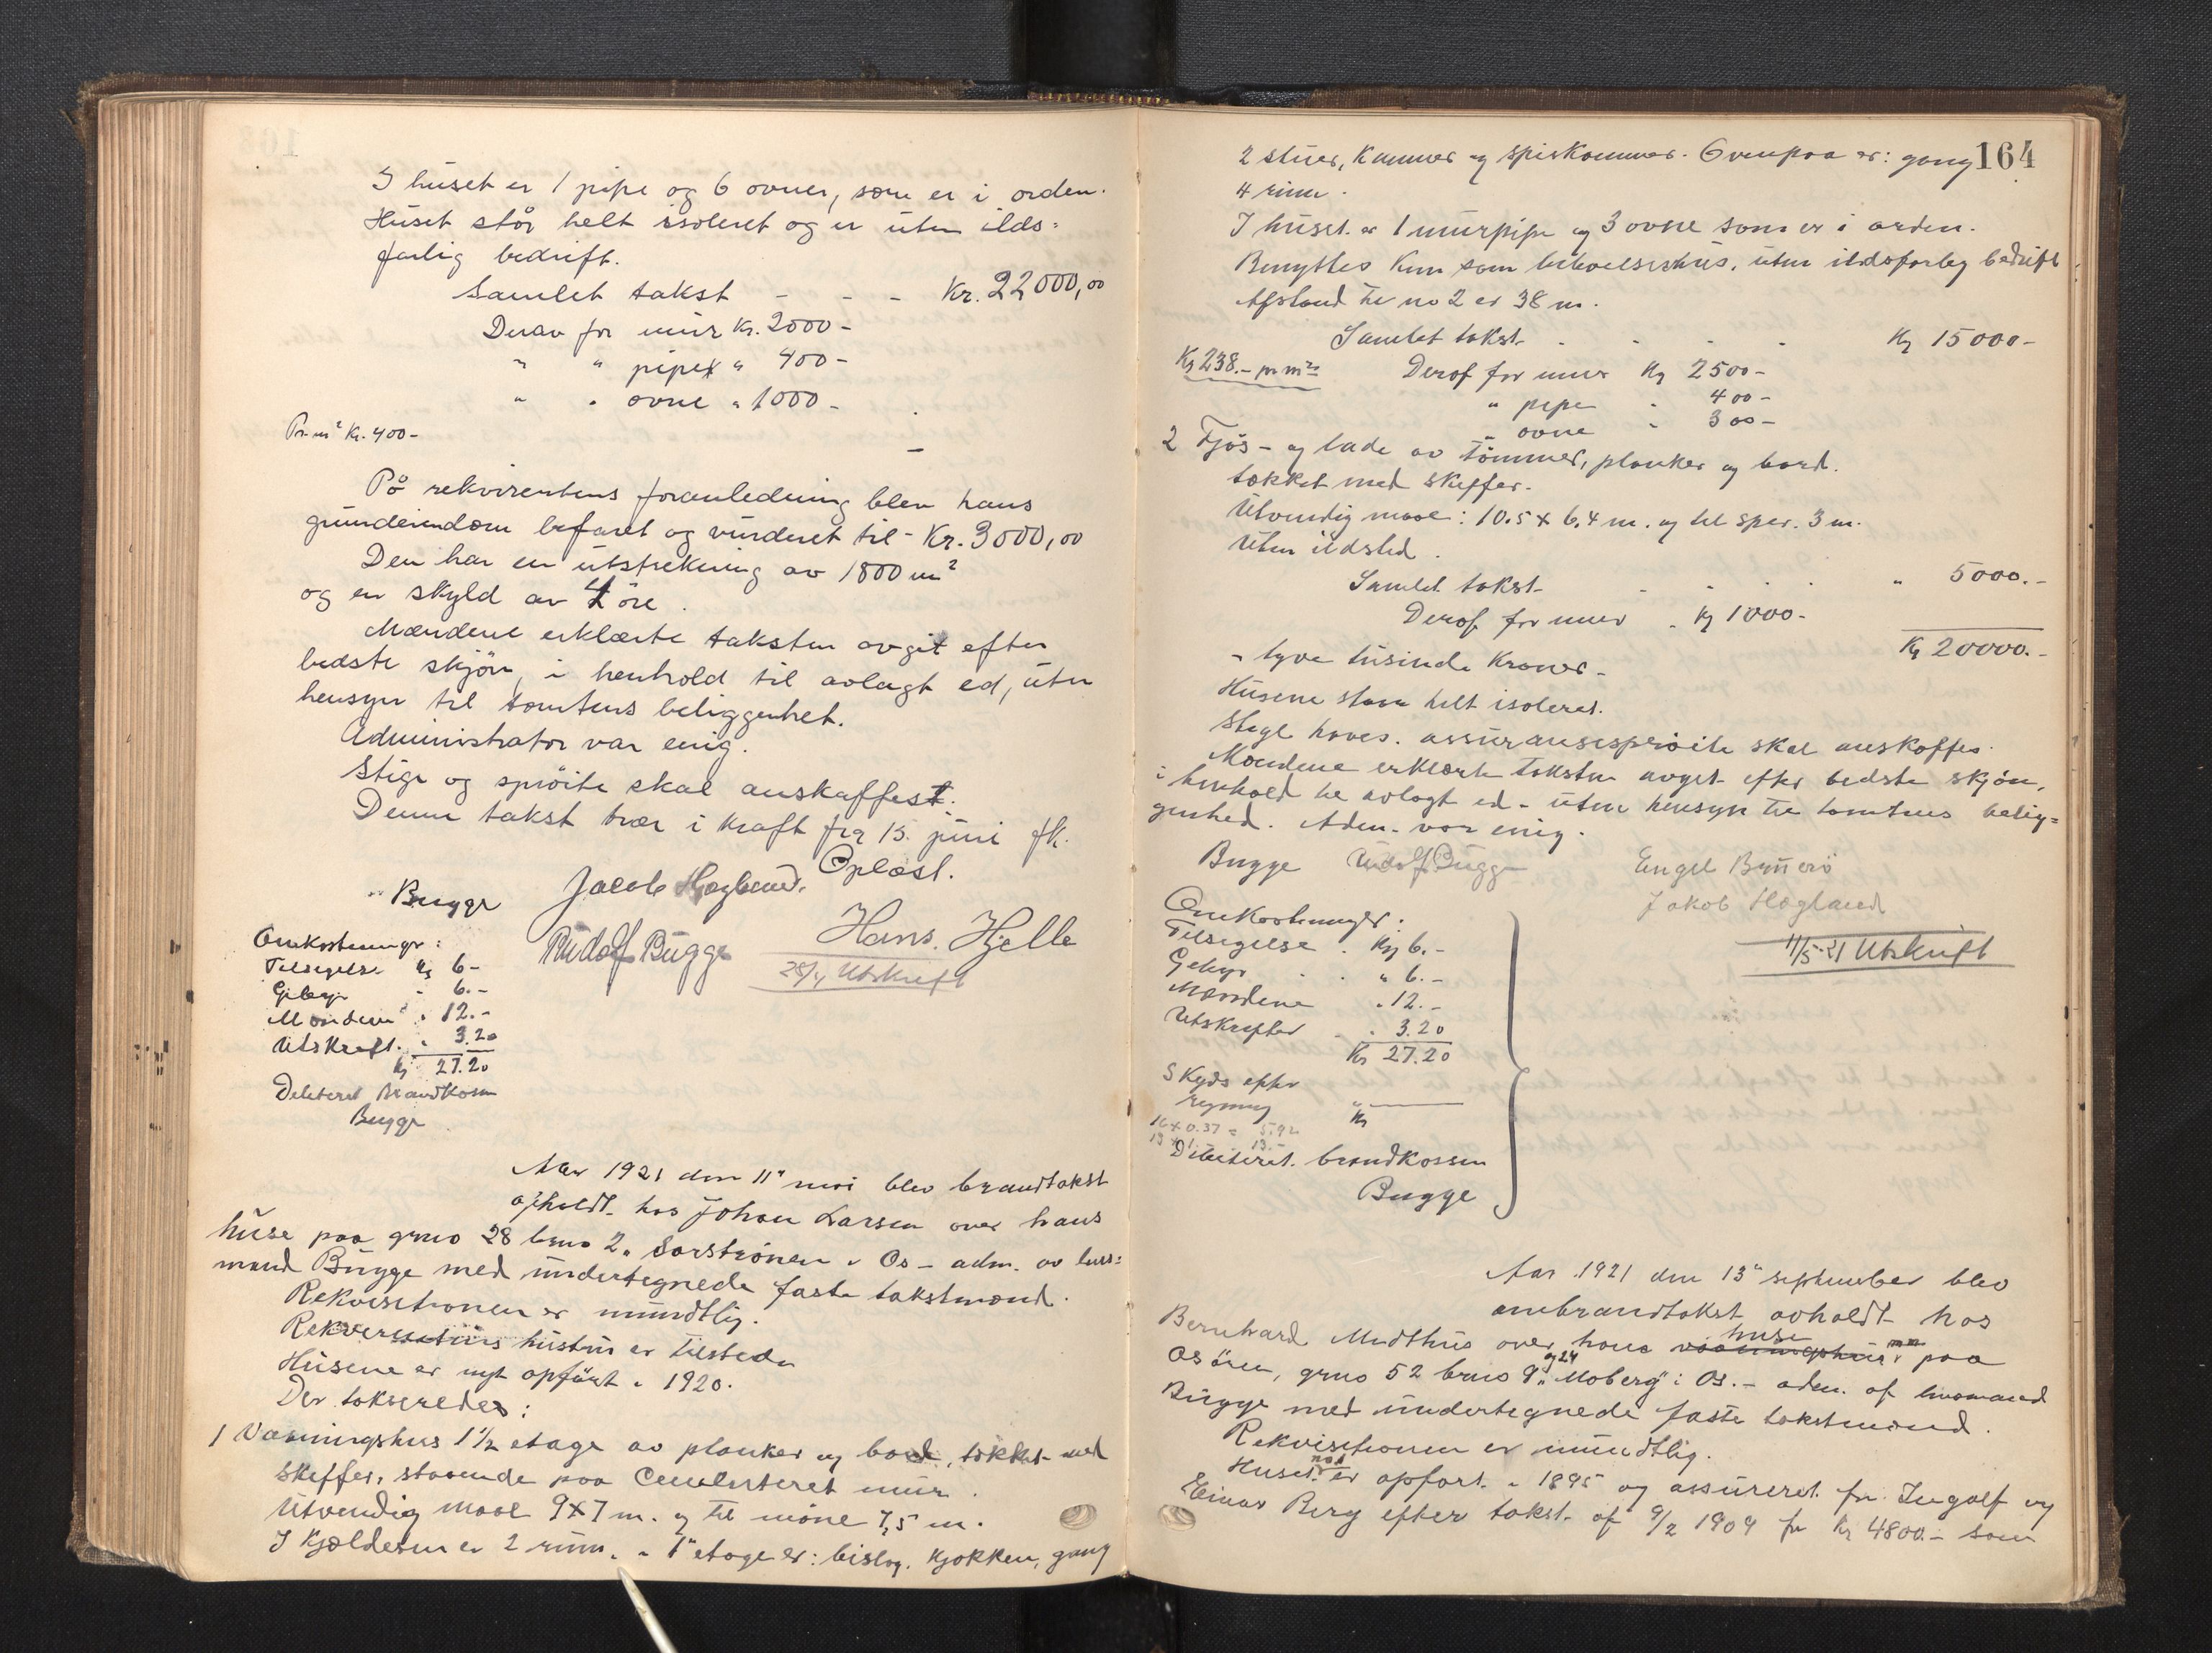 I huset er 1 pipe og 6 ovner, som er i orden.
Huset står helt isoleret og er uten ilds=
farlig bedrift.
Samlet takst - - - Kr. 22 000,00
Derav for mur Kr. 2000-
" " pipe " 400-
" " ovne " 1000-
Pr. m² Kr. 400-
På rekvirentens foranledning blev hans
grundeiendom befaret og vurderet til - Kr. 3000,00
Den har en utstrekning av 1800 m²
og en skyld av 4 öre.
Mændene erklærte taksten avgit efter
bedste skjön, i henhold til avlagt ed, uten
hensyn til tomtens beliggenhet.
Administrator var enig.
Stige og spröite skal anskaffes.
Denne takst trær i kraft fra 15. juni fk.
Oplæst.
Bugge Jacob Hagland.
Rudolf Bugge Hans. Hjelle
28/4 Utskrift
Omkostninger:
Tilsigelse Kr 6-
Gebyr " 6.-
Mændene " 12.-
Utskrift. " 3.20
Kr 27.20
Debiteret Brandkassen
Bugge
Aar 1921 den 11" mai blev brandtakst
afholdt hos Johan Larsen over hans
huse paa grno 28 brno 2 " Sørstrønen " Os - adm. av lens=
mand Bugge med undertegnede faste takstmænd.
Rekvisitionen er mundtlig.
Rekvirentens hustru er tilstede
Husene er nyt opført i 1920.
Der takseredes:
1 Vaaningshus 1½ etage av planker og bord, tækket med
skiffer, staaende paa Cementeret mur.
Utvendig maal 9x7 m. og til møne 7,5 m.
I kjælderen er 2 rum. i 1" etage er: bislag, kjøkken, gang
164
2 stuer, kammer og spiskammer. Ovenpaa er: gang
4 rum.
I huset er 1 murpipe og 3 ovne som er i orden.
Benyttes kun som beboelseshus, uten ildsfarlig bedrift
Afstand til no 2 er 38 m.
Samlet takst - - - Kr 15000-
Kr 238.- pr m² Derof for mur Kr 2500-
" pipe " 400-
" ovne " 300-
2 Fjös- og lade av tömmer, planker og bord.
tækket med skiffer.
Utvendig maal: 10.5 x 6.4 m. og til sper. 3 m.
Uten ildsted.
Samlet takst - - - " 5000.-
Derof for mur . Kr 1000-
Kr 20000.-
- tyve tusinde Kroner -
Husene staar helt isoleret.
Stige haves. assuransespröite skal anskaffes.
Mændene erklærte taksten avgit efter bedste skjøn,
i henhold til avlagt ed - uten hensyn til tomtens belig=
genhed. Adm. var enig.
Bugge Rudolf Bugge Engel Bruerö
Jakob Hagland
11/5-21 Utskrift
Omkostninger:
Tilsigelse . Kr 6.-
Gebyr . . " 6.-
Mændene " 12.-
Utskrifter - " 3.20
Kr 27.20
Skyds efter
regning "
Kr
16 x 0.37 = 5.92
13 x 1 13.-
Debiteret brandkassen
Bugge
Aar 1921 den 13" september blev
ombrandtakst avholdt hos
Bernhard Midthus over hans vaaningshus huse paa
Osören, grno 52 brno 9 og 24 "Moberg" i Os. - adm. af lensmand
Bugge med undertegnede faste takstmænd.
Rekvisitionen er mundtlig.
Huset no 1 er opført i 1895 og assureret for Ingolf og
Einar Berg efter takst af 9/2 1909 for Kr 4800.- som